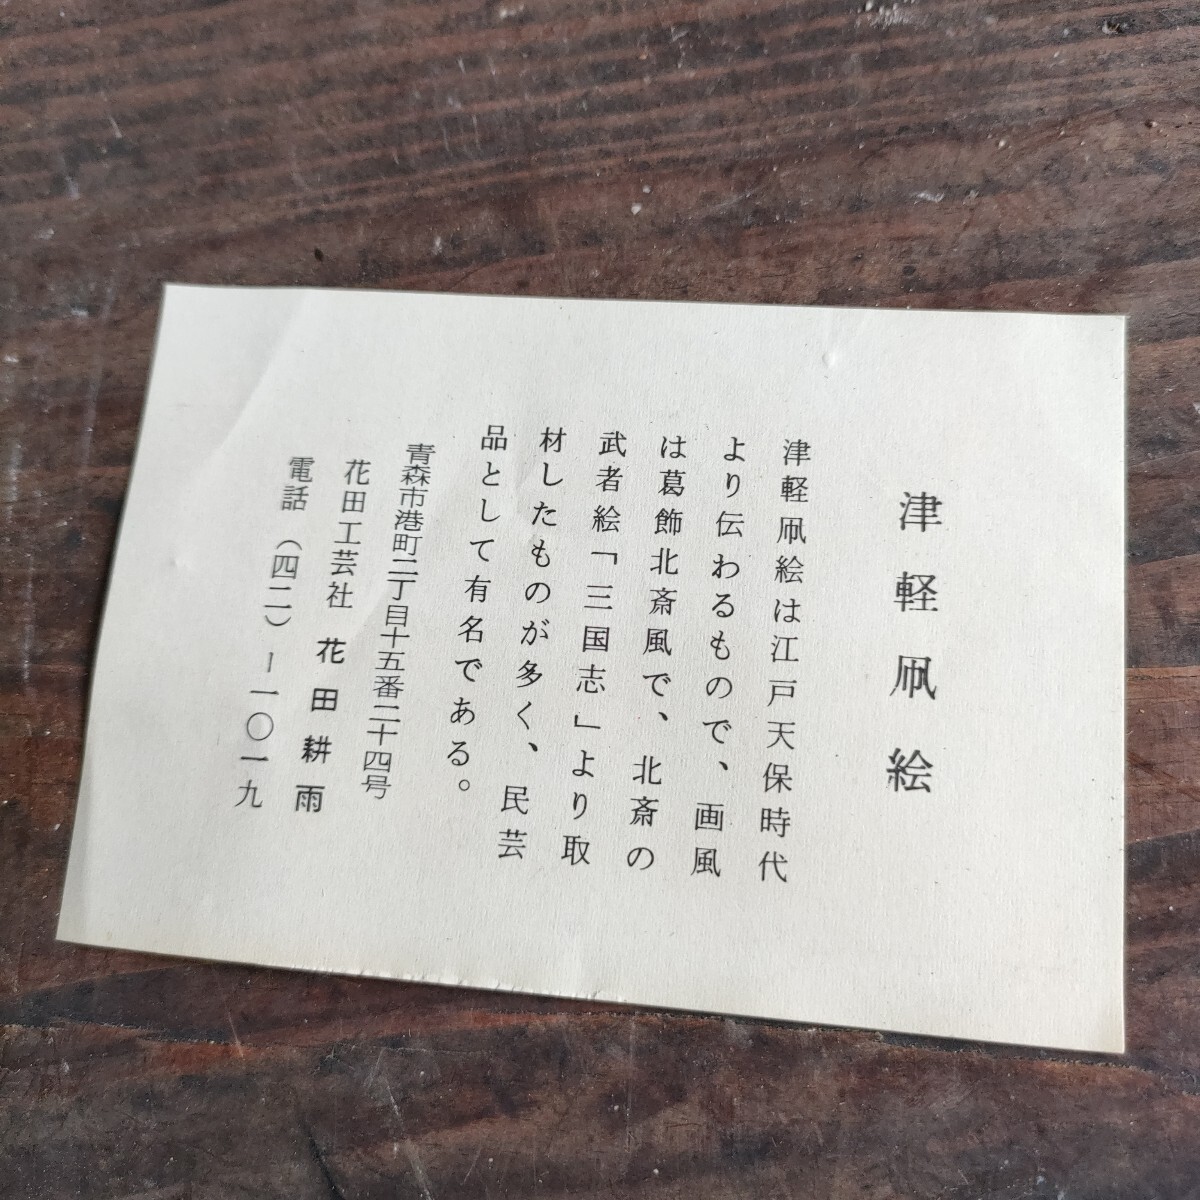 津軽凧絵
津軽凧絵は江戸天保時代
より伝わるもので、画風
は葛飾北斎風で、北斎の
武者絵「三国志」より取
材したものが多く、民芸
品として有名である。
青森市港町二丁目十五番二十四号
花田工芸社 花田耕雨
電話(四二)ー一〇一九